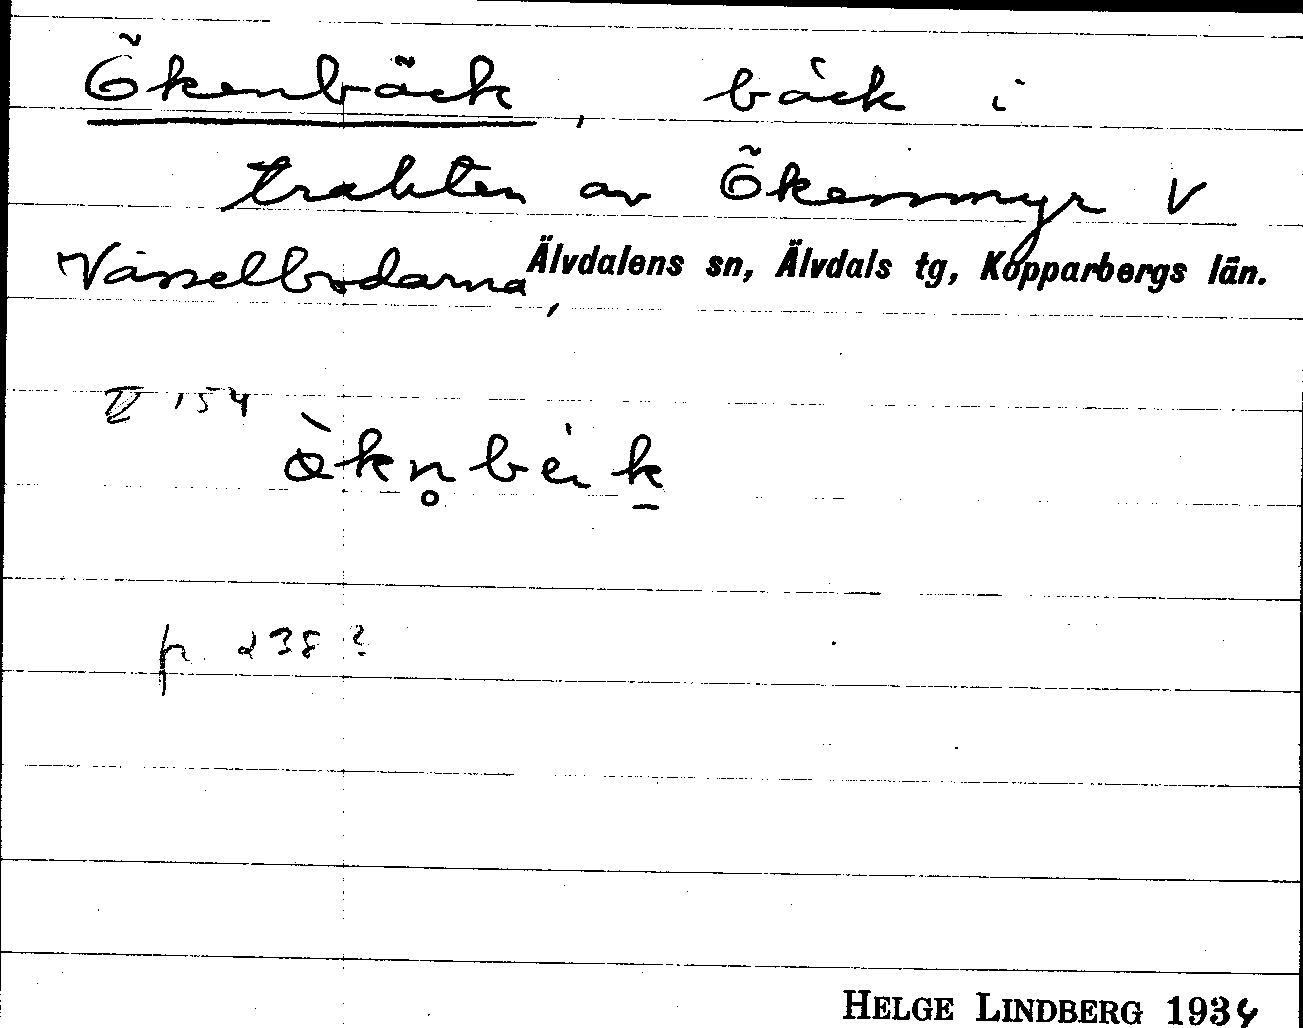 Ökenbäck, bäck i
trakten av Ökenmyr V
Vässelbodarna, Älvdalens sn, Älvdals tg, Kopparbergs län.
II 154
ὼkn̥bèi k̲
p. 238?
HELGE LINDBERG 1934